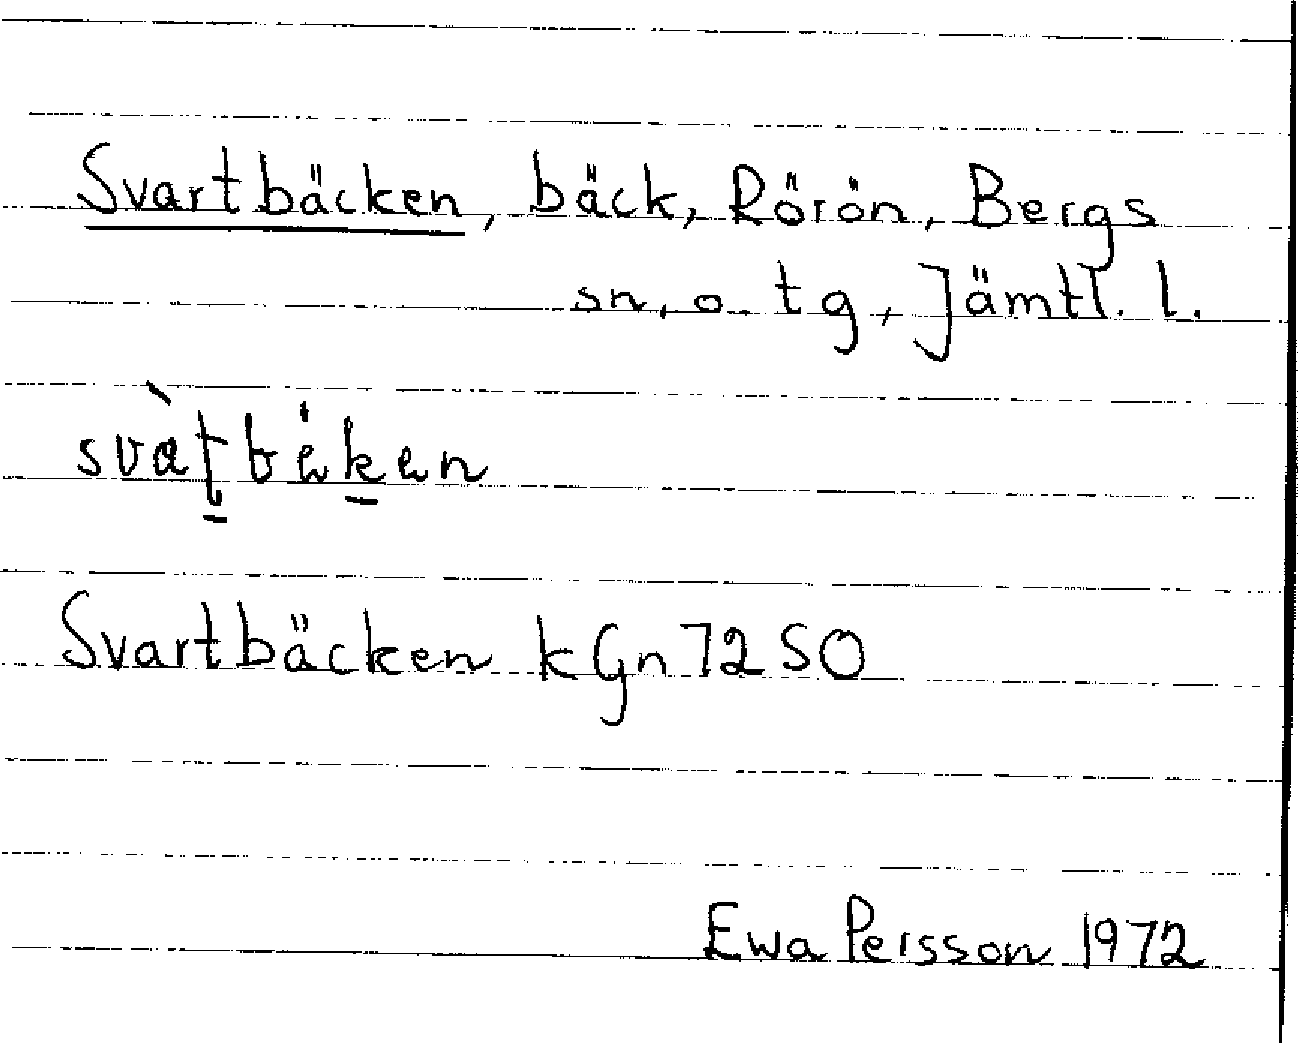 Svartbäcken, bäck, Rörön, Bergs
sn, o. tg, Jämtl. l.
svàʈbä́ken
Svartbäcken kGn 72 SO
Ewa Persson 1972